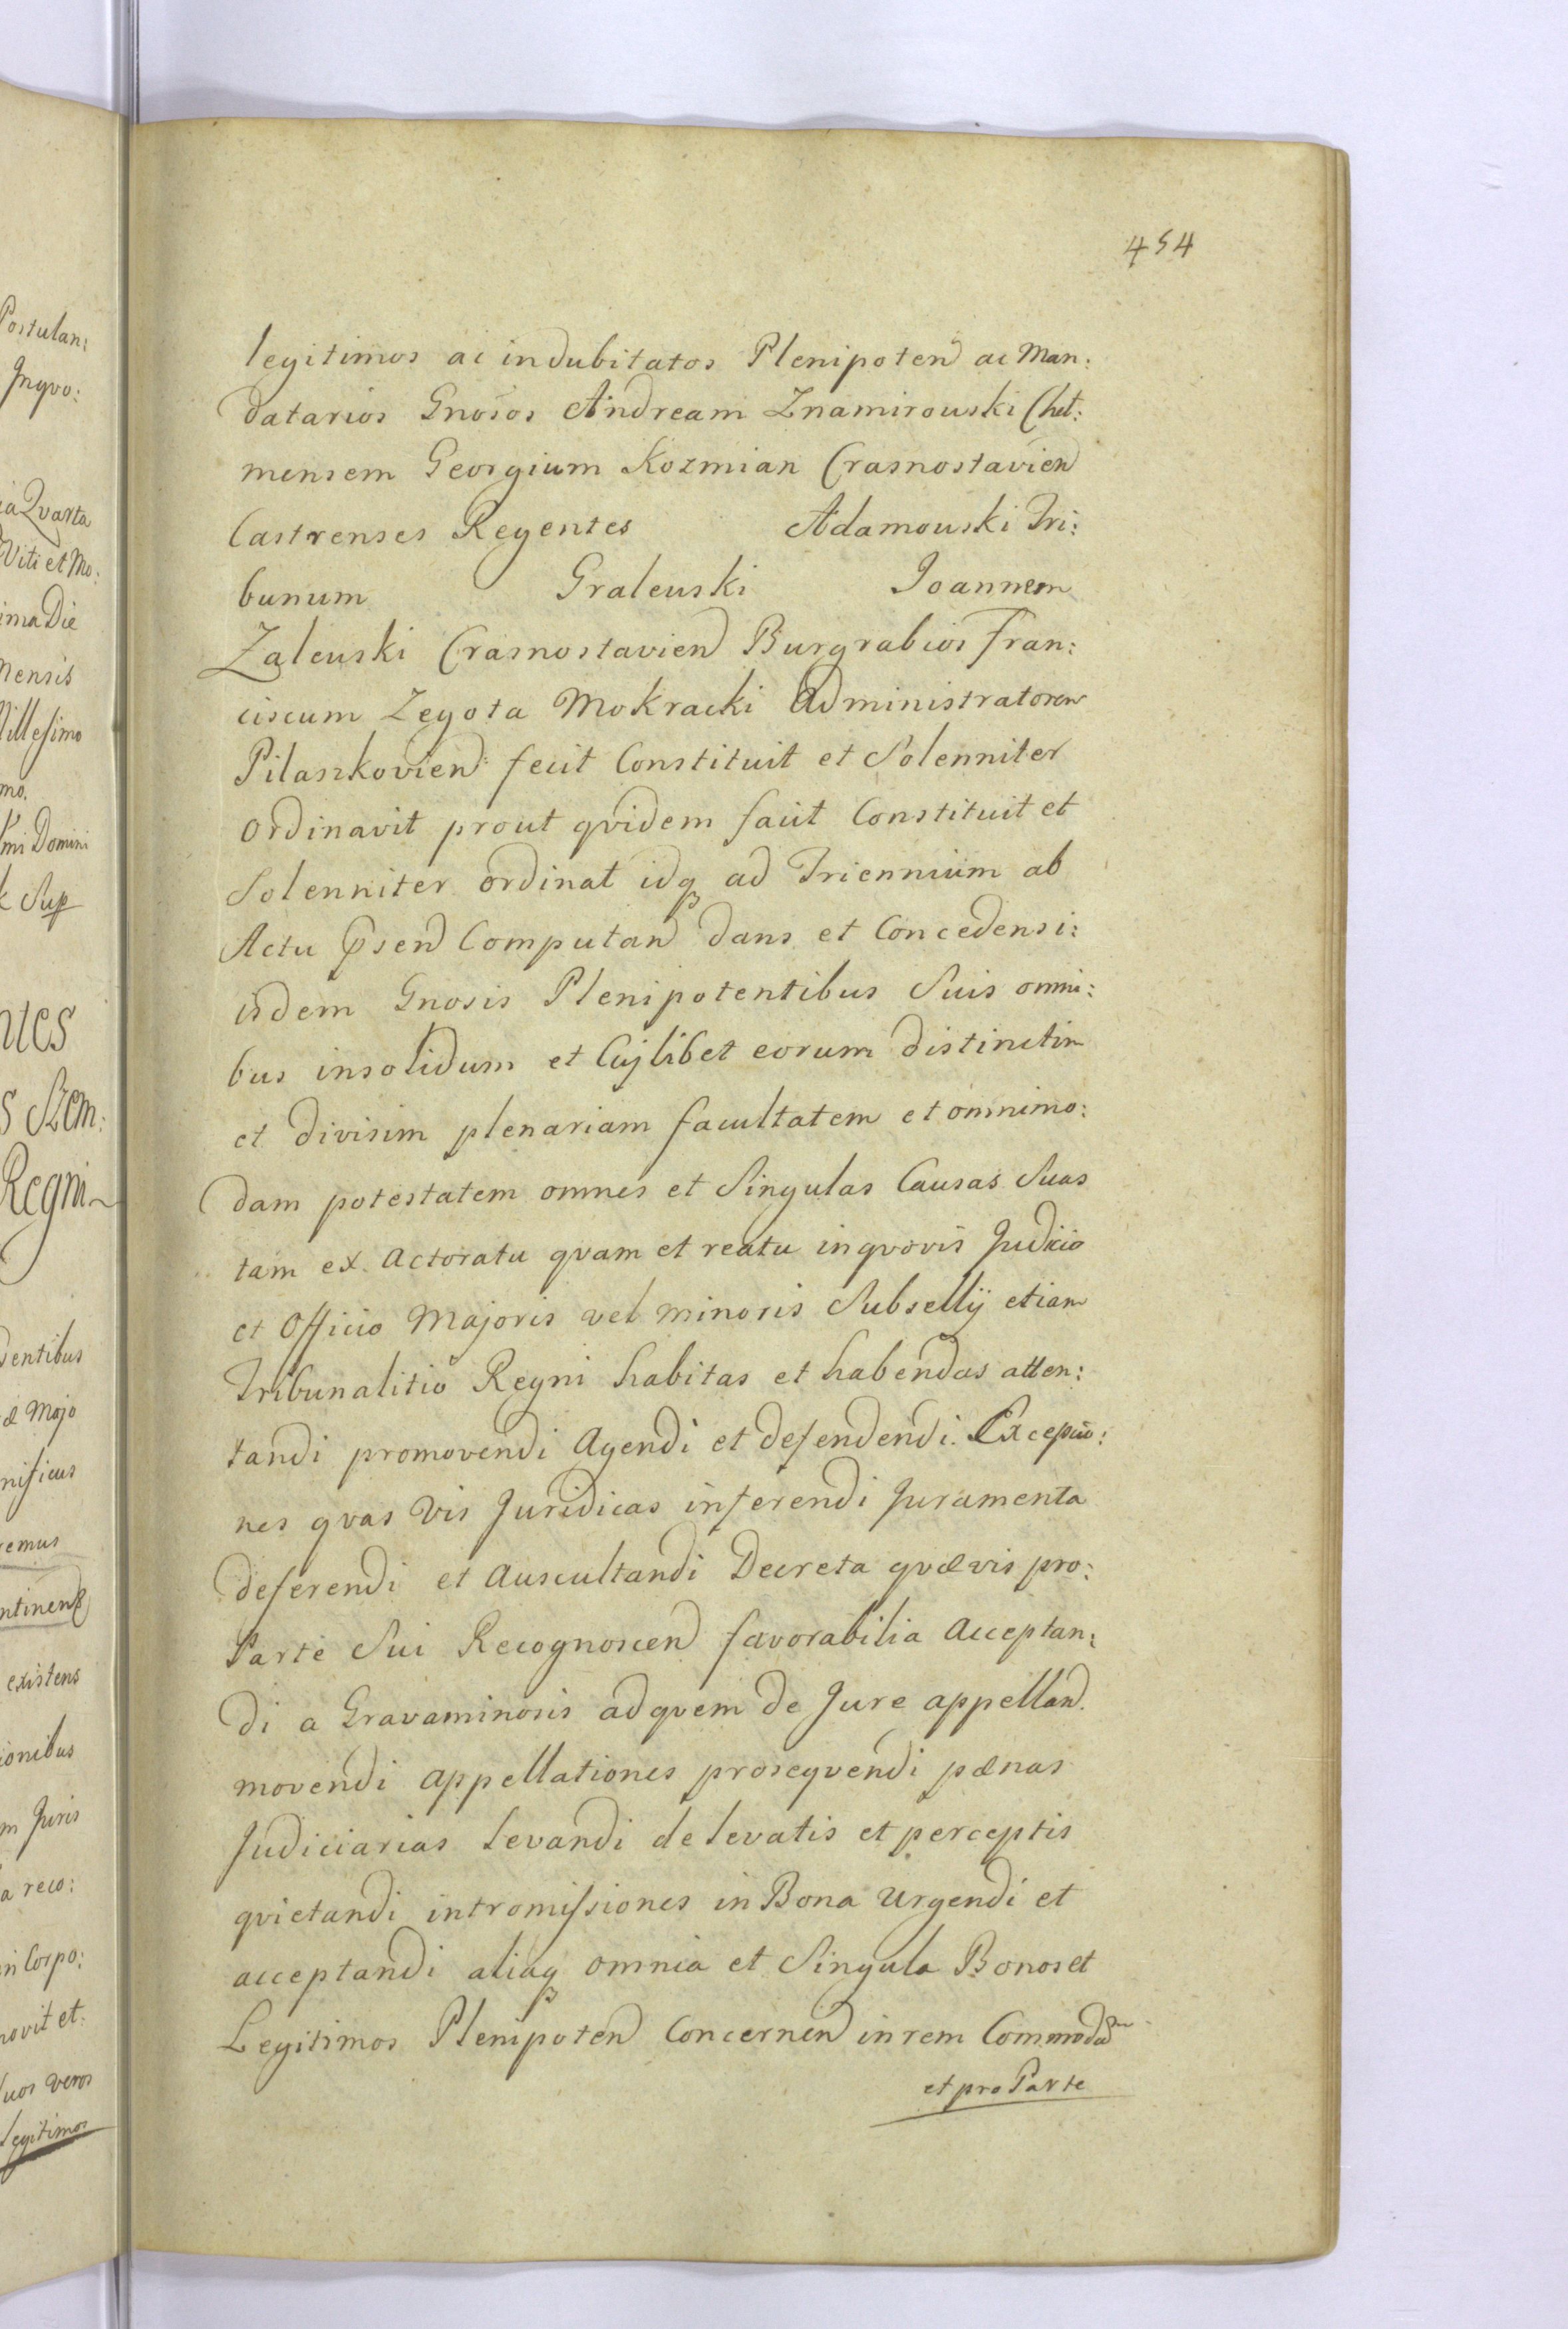 454
legitimos ac indubitatos Plenipoten ac Man:
datarios Gnosos Andream Znamirowski Chel:
mensem Georgium Kozmian Crasnostavien
Castrenses Regentes Adamowski Tri:
bunum Gralewski Joannem
Zalewski Crasnostavien Burgrabios Fran:
ciscum Zegota Mokracki Administratorem
Pilaszkovien: fecit Constituit et Solenniter
ordinavit prout qvidem facit Constituit et
Solenniter ordinat idq ad Triennium ab
Actu psen Computan dans et Concedens i:
isdem Gnosis Plenipotentibus Suis omni:
bus insolidum et Cujlibet eorum distinctim
et divisim plenariam facultatem et omnimo:
dam potestatem omnes et Singulas Causas Suas
tam ex Actoratu qvam et reatu inqvovis Judicio
et Officio Majoris vel minoris Subsellij etiam
Tribunalitio Regni habitas et habendas atten:
tandi promovendi Agendi et defendendi. Excepcio:
nes qvas vis Juridicas inferendi Juramenta
deferendi et Auscultandi Decreta qvævis pro:
Parte Sui Recognoscen favorabilia Acceptan:
di a Gravaminosis adqvem de Jure appellan.
movendi Appellationes proseqvendi pænas
Judiciarias levandi de levatis et perceptis
qvietandi intromissiones in Bona Urgendi et
acceptandi aliaq omnia et Singula Bonos et
Legitimos Plenipoten Concernen in rem Commodam
et pro Parte
Postulan:
Jnqvo:
Qvarta
Viti et Mo:
ima Die
mensis
Millesimo
mo.
Domini
Sup
ntes
s Szem:
Regni
dentibus
Majo
nificus
remus
ntinen
existens
ionibus
m Juris
a reco:
in Corpo:
novit et
suos veros
Legitimos